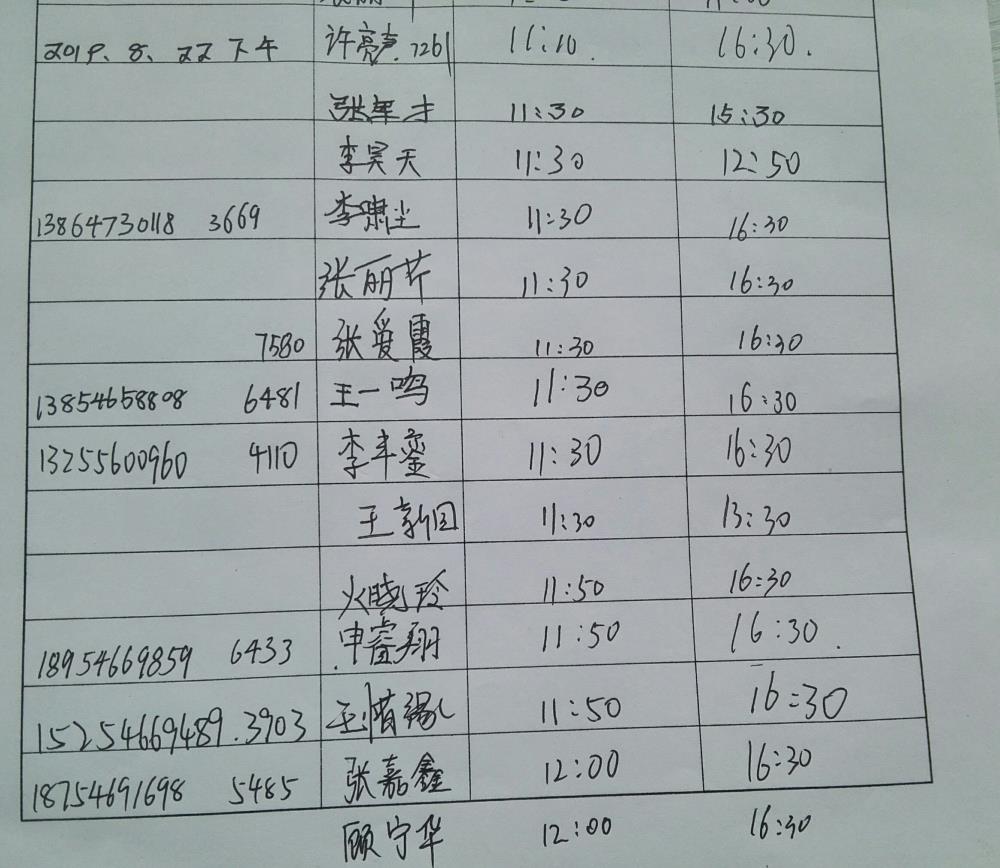 2019.8.22下午 许亮声.7261 11:10 16:30.
张军才 11:30 15:30
李昊天 11:30 12:50
13864730118 3669 李啸尘 11:30 16:30
张丽芹 11:30 16:30
7580 张爱霞 11:30 16:30
13854658808 6481 王一鸣 11:30 16:30
13255600960 4110 李丰銮 11:30 16:30
王新国 11:30 13:30
火晓玲 11:50 16:30
18954669859 6433 申睿翔 11:50 16:30.
15254669489.3903 11:50 16:30
18754691698 5485 张嘉鑫 12:00 16:30
顾宁华 12:00 16:30